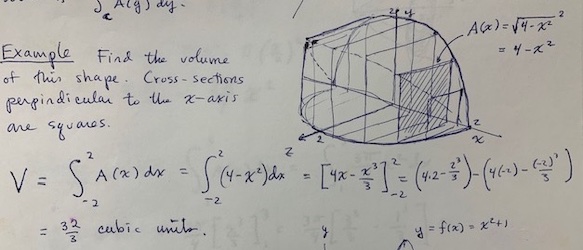 ∫ A(y) dy.
Example Find the volume
of this shape. Cross-sections
perpindicular to the x-axis
are squares.
2 y
A(x) = √4-x² ²
= 4-x²
z 2
2
x
V = ∫₋₂² A(x) dx = ∫₋₂² (4-x²)dx = [4x - x³/3]₋₂² = (4·2 - 2³/3) - (4(-2) - (-2)³/3)
= 32/3 cubic units.
y
y = f(x) = x²+1